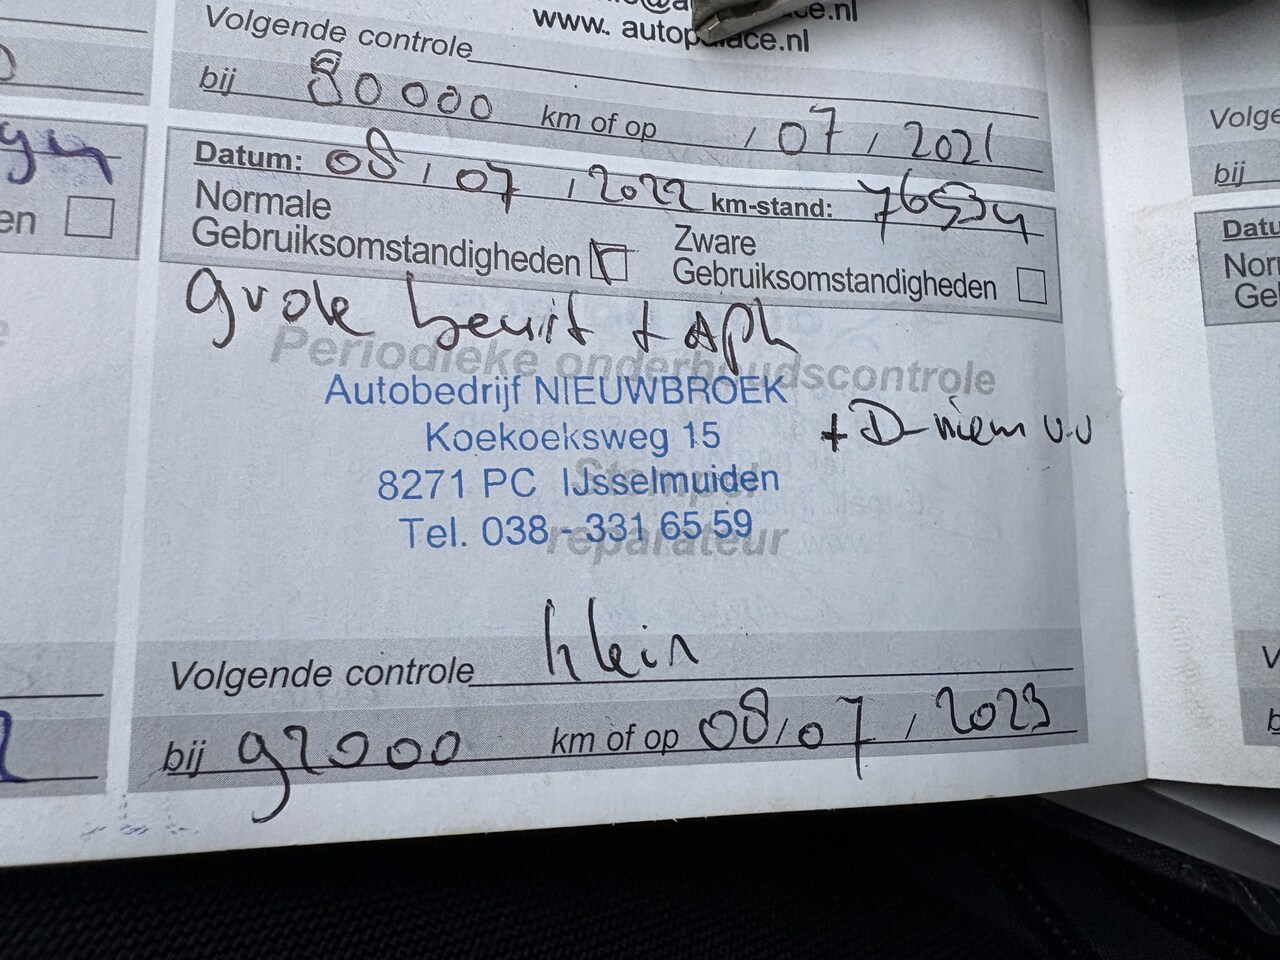 www. autopalace.nl
Volgende controle
bij 80000 km of op / 07 / 2021
Datum: 08 / 07 / 2022 km-stand: 76534
Normale Gebruiksomstandigheden
Zware Gebruiksomstandigheden
grote beurt + APK
Periodieke onderhoudscontrole
Autobedrijf NIEUWBROEK
+ D-riem v.v
Koekoeksweg 15
8271 PC IJsselmuiden
Stempel
Tel. 038 - 331 65 59
reparateur
Volgende controle klein
bij 92000 km of op 08 / 07 / 2023
en
Volge
bij
Datu
Nor
Ge